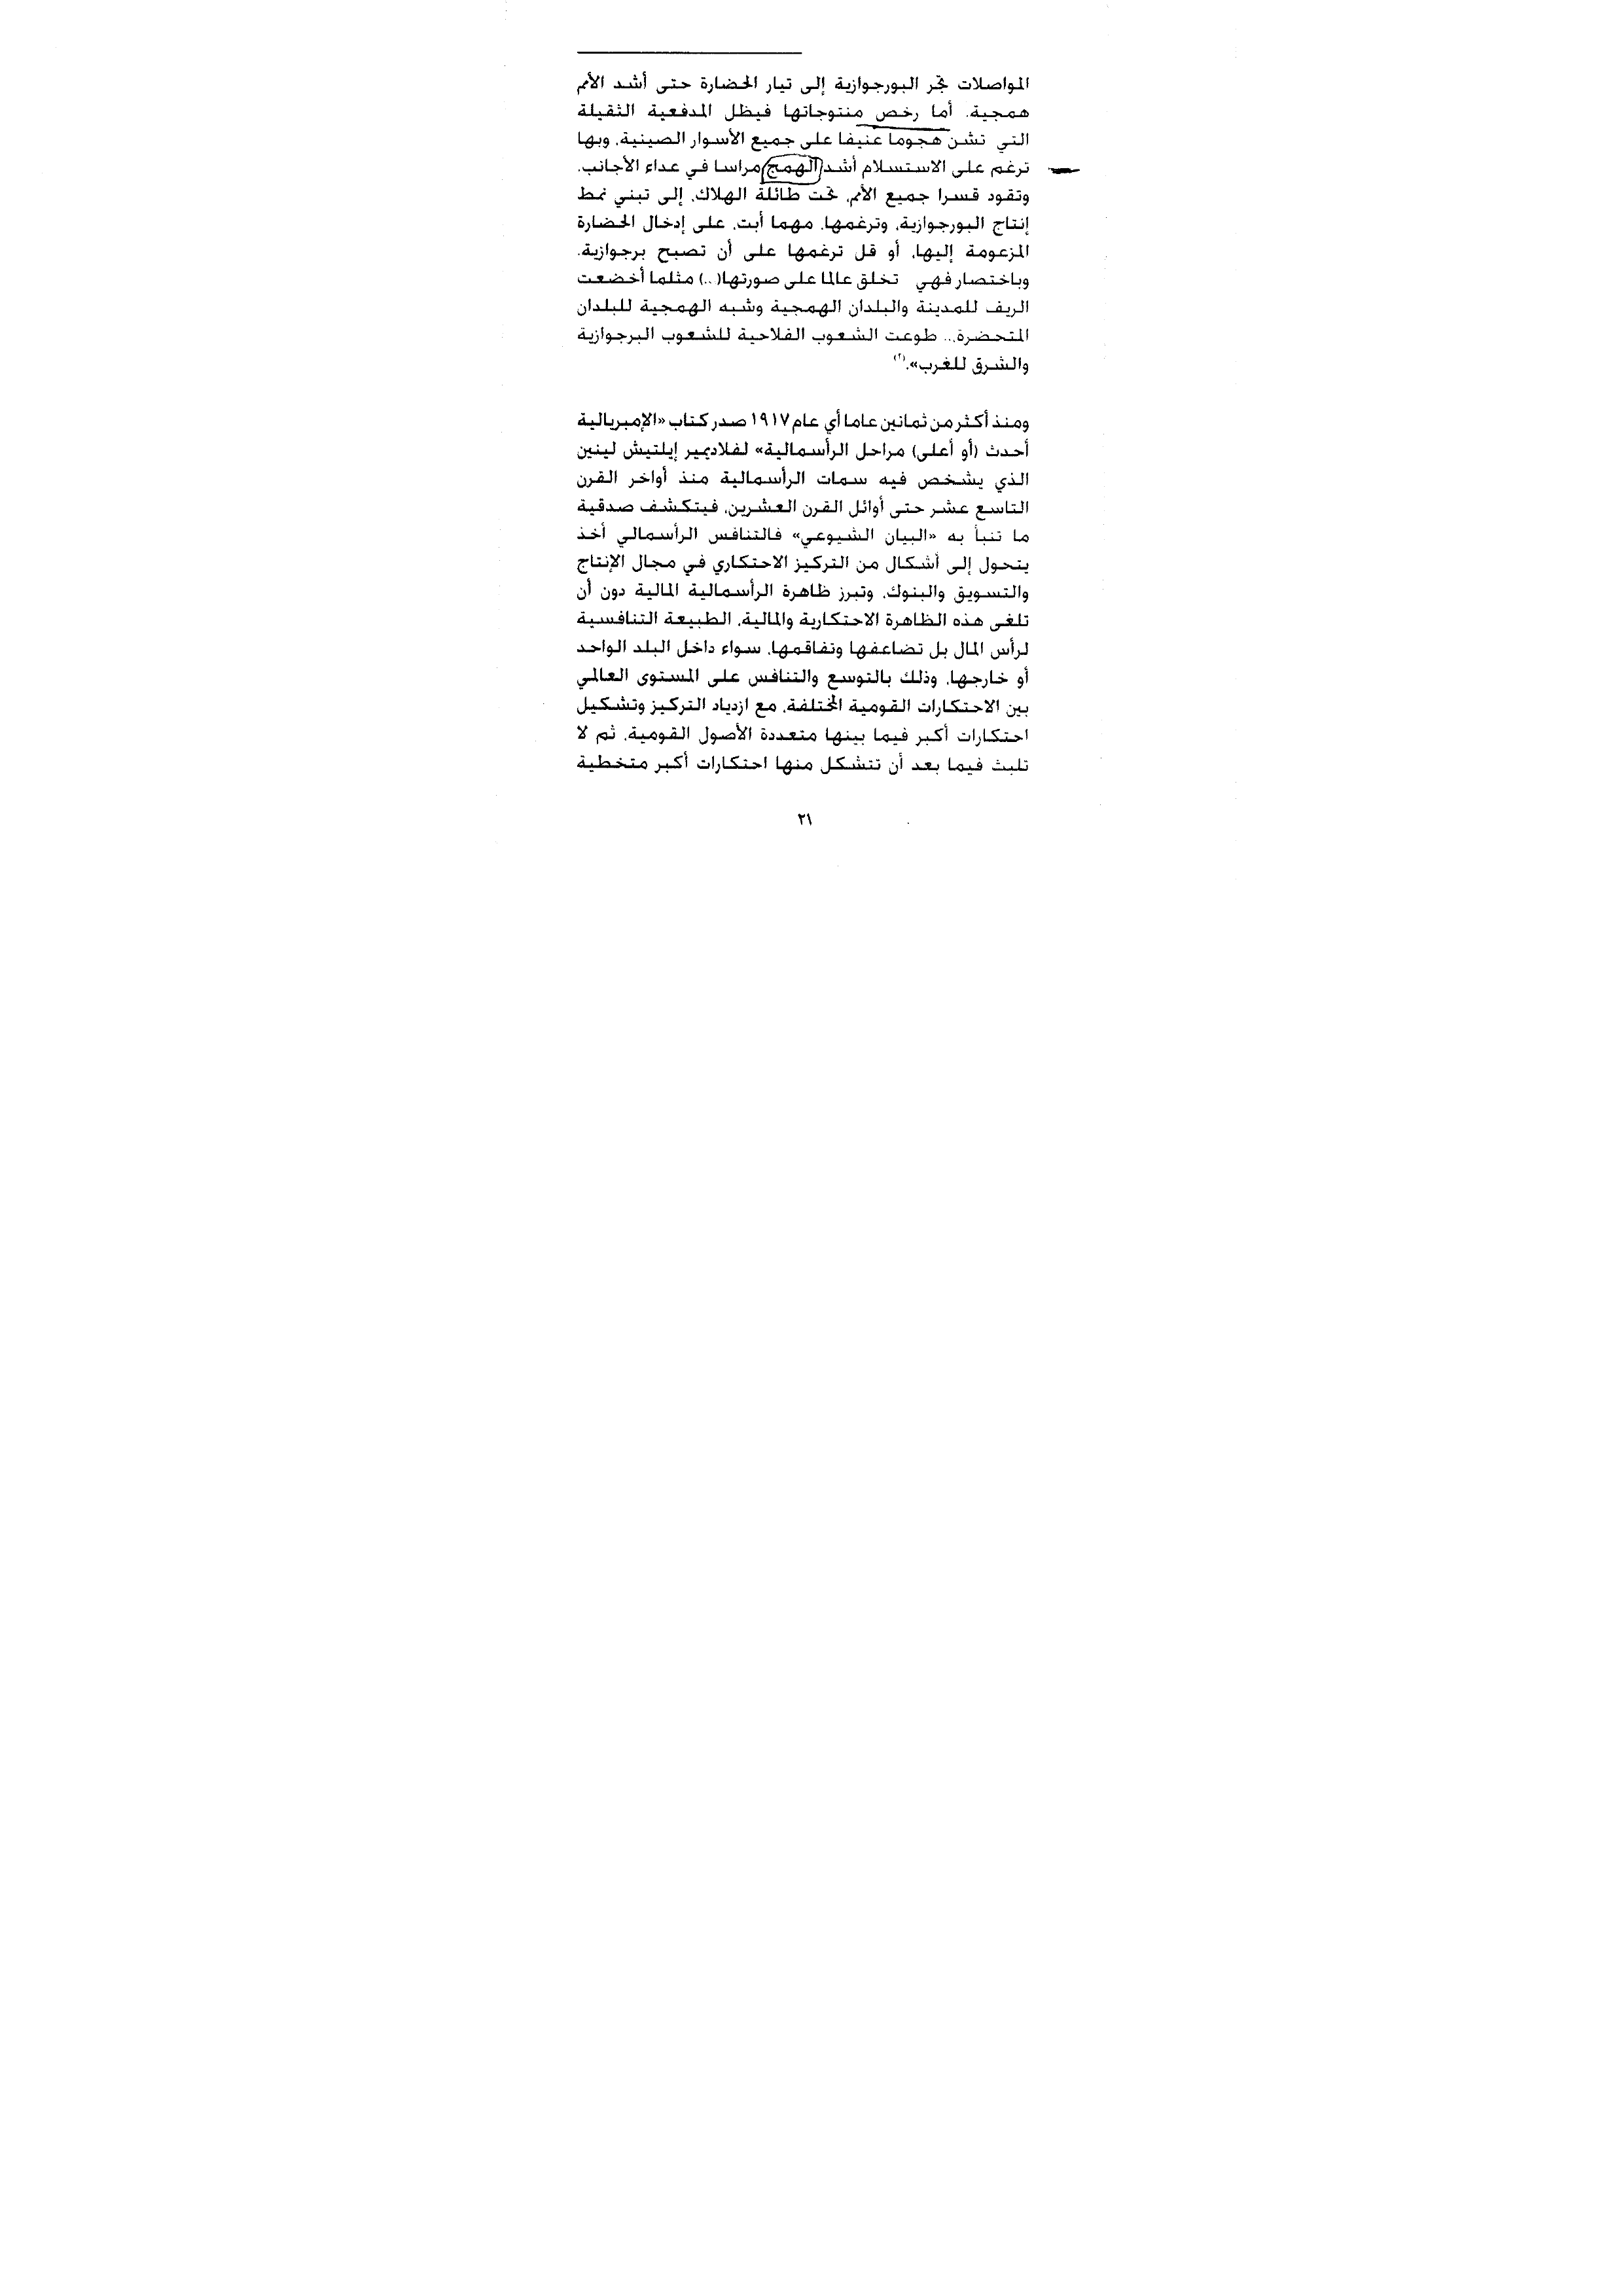 المواصلات تجر البورجوازية إلى تيار الحضارة حتى أشد الأمم
همجية. أما رخص منتوجاتها فيظل المدفعية الثقيلة
التي تشن هجوما عنيفا على جميع الأسوار الصينية، وبها
ترغم على الاستسلام أشد الهمج مراسا في عداء الأجانب.
وتقود قسرا جميع الأمم، تحت طائلة الهلاك، إلى تبني نمط
إنتاج البورجوازية، وترغمها، مهما أبت، على إدخال الحضارة
المزعومة إليها، أو قل ترغمها على أن تصبح برجوازية.
وباختصار فهي تخلق عالما على صورتها(..) مثلما أخضعت
الريف للمدينة والبلدان الهمجية وشبه الهمجية للبلدان
المتحضرة... طوعت الشعوب الفلاحية للشعوب البرجوازية
والشرق للغرب».(٢)
ومنذ أكثر من ثمانين عاما أي عام ١٩١٧ صدر كتاب «الإمبريالية
أحدث (أو أعلى) مراحل الرأسمالية» لفلاديمير إيلتيش لينين
الذي يشخص فيه سمات الرأسمالية منذ أواخر القرن
التاسع عشر حتى أوائل القرن العشرين، فيتكشف صدقية
ما تنبأ به «البيان الشيوعي» فالتنافس الرأسمالي أخذ
يتحول إلى أشكال من التركيز الاحتكاري في مجال الإنتاج
والتسويق والبنوك، وتبرز ظاهرة الرأسمالية المالية دون أن
تلغى هذه الظاهرة الاحتكارية والمالية، الطبيعة التنافسية
لرأس المال بل تضاعفها وتفاقمها، سواء داخل البلد الواحد
أو خارجها، وذلك بالتوسع والتنافس على المستوى العالمي
بين الاحتكارات القومية المختلفة، مع ازدياد التركيز وتشكيل
احتكارات أكبر فيما بينها متعددة الأصول القومية، ثم لا
تلبث فيما بعد أن تتشكل منها احتكارات أكبر متخطية
٢١